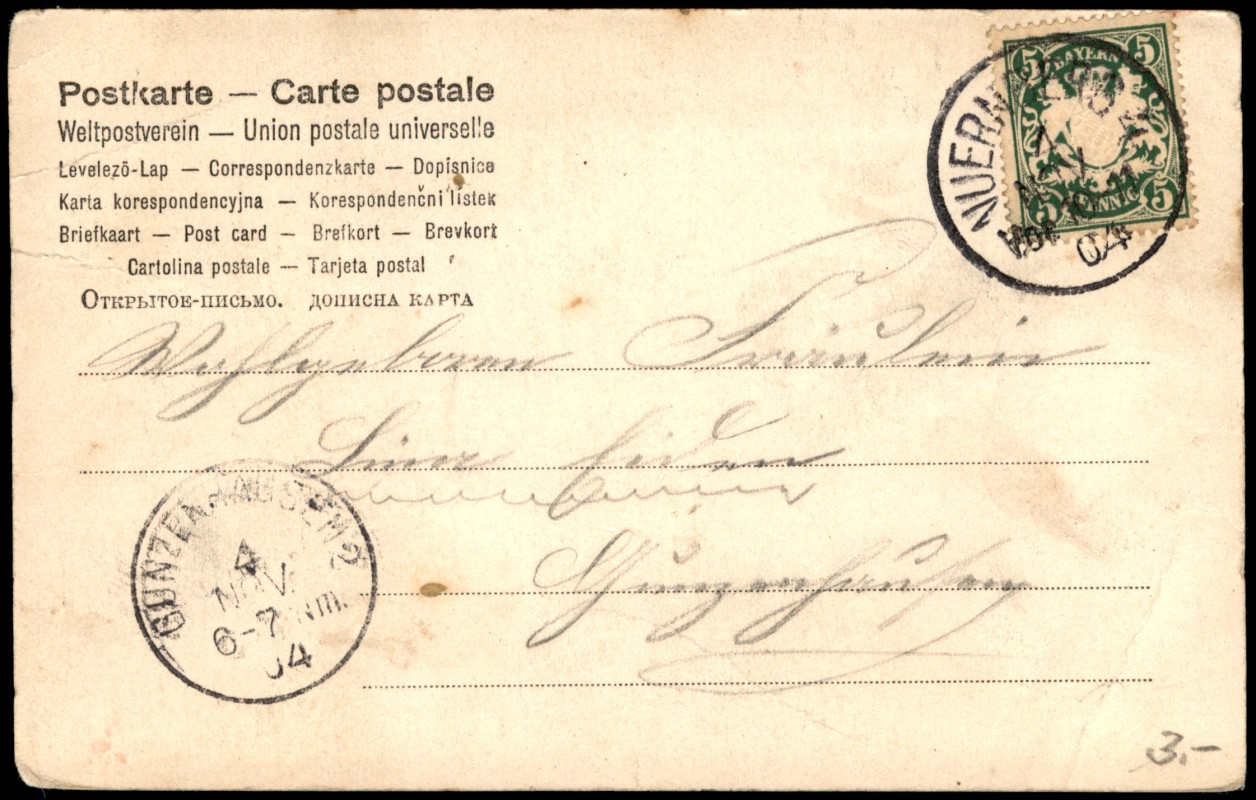 Postkarte — Carte postale
Weltpostverein — Union postale universelle
Levelező-Lap — Correspondenzkarte — Dopisnica
Karta korespondencyjna — Korespondenčni listek
Briefkaart — Post card — Brefkort — Brevkort
Cartolina postale — Tarjeta postal
Открытое-письмо. дописна карта
5 BAYERN 5
5 PFENNIG 5
NUERNBERG 2
4
NOV
Vor 10-11
04
Wohlgeboren Fräulein
Gunzenhausen
GUNZENHAUSEN 2
4
NOV
6-7 Nm.
04
3.-